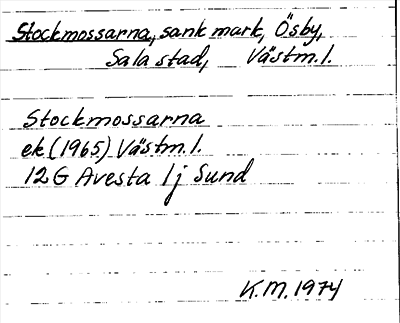 Stockmossarna, sank mark, Ösby,
Sala stad, Västm.l.
Stockmossarna
ek (1965) Västm.l.
12G Avesta 1j Sund
K.M. 1974